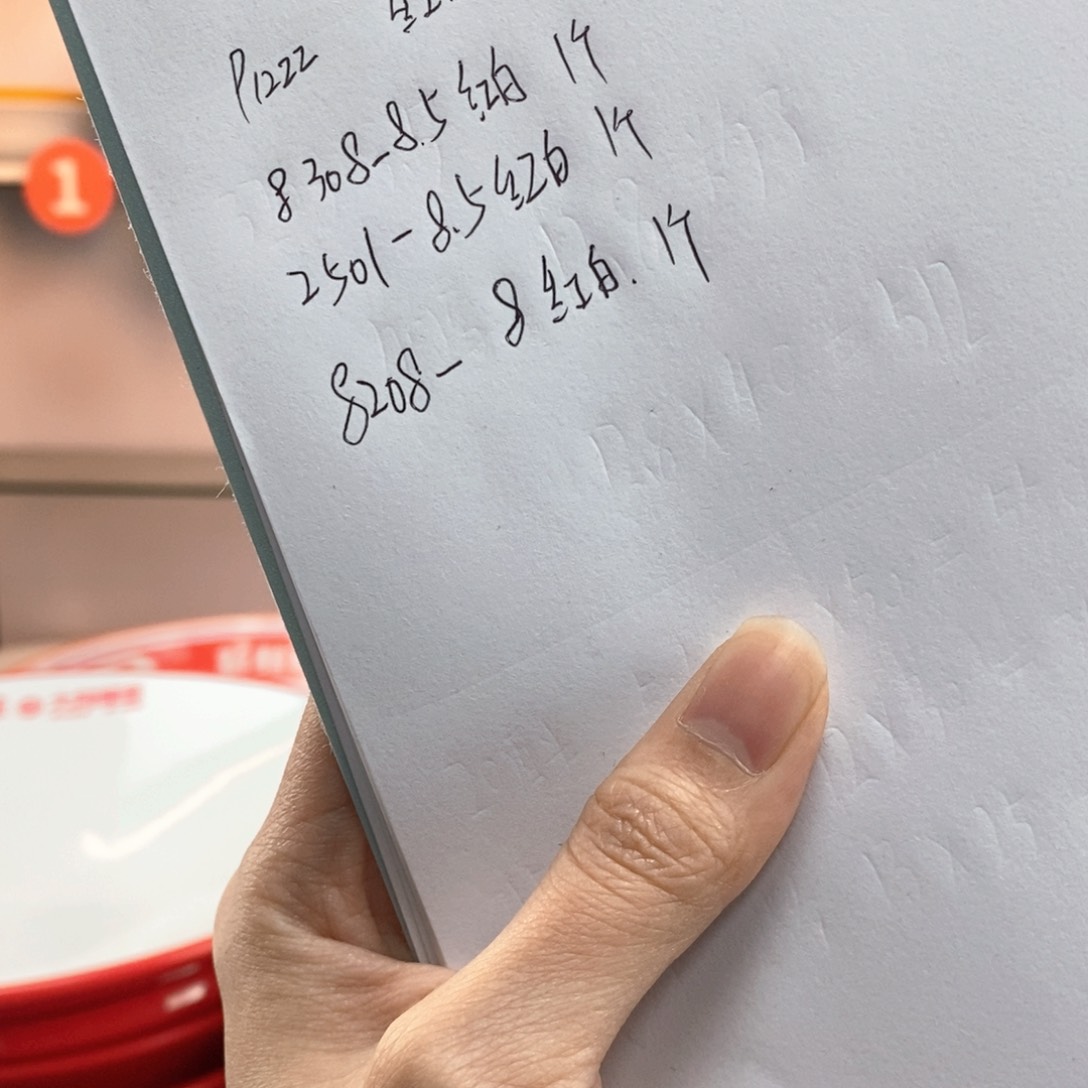 P1222
8308-8.5 红白 1件
2501-8.5 红白 1件
8208- 8 红白. 1件
1